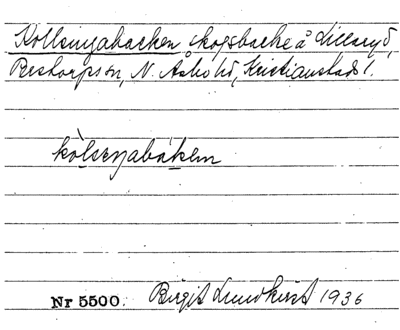 Kollsingabacken skogsbacke å Lillaryd,
Pestorpssön, N. Åsbo hd, Kristianstads l.
kòlseŋabáken
Nr 5500. Birgit Lundkvist 1936